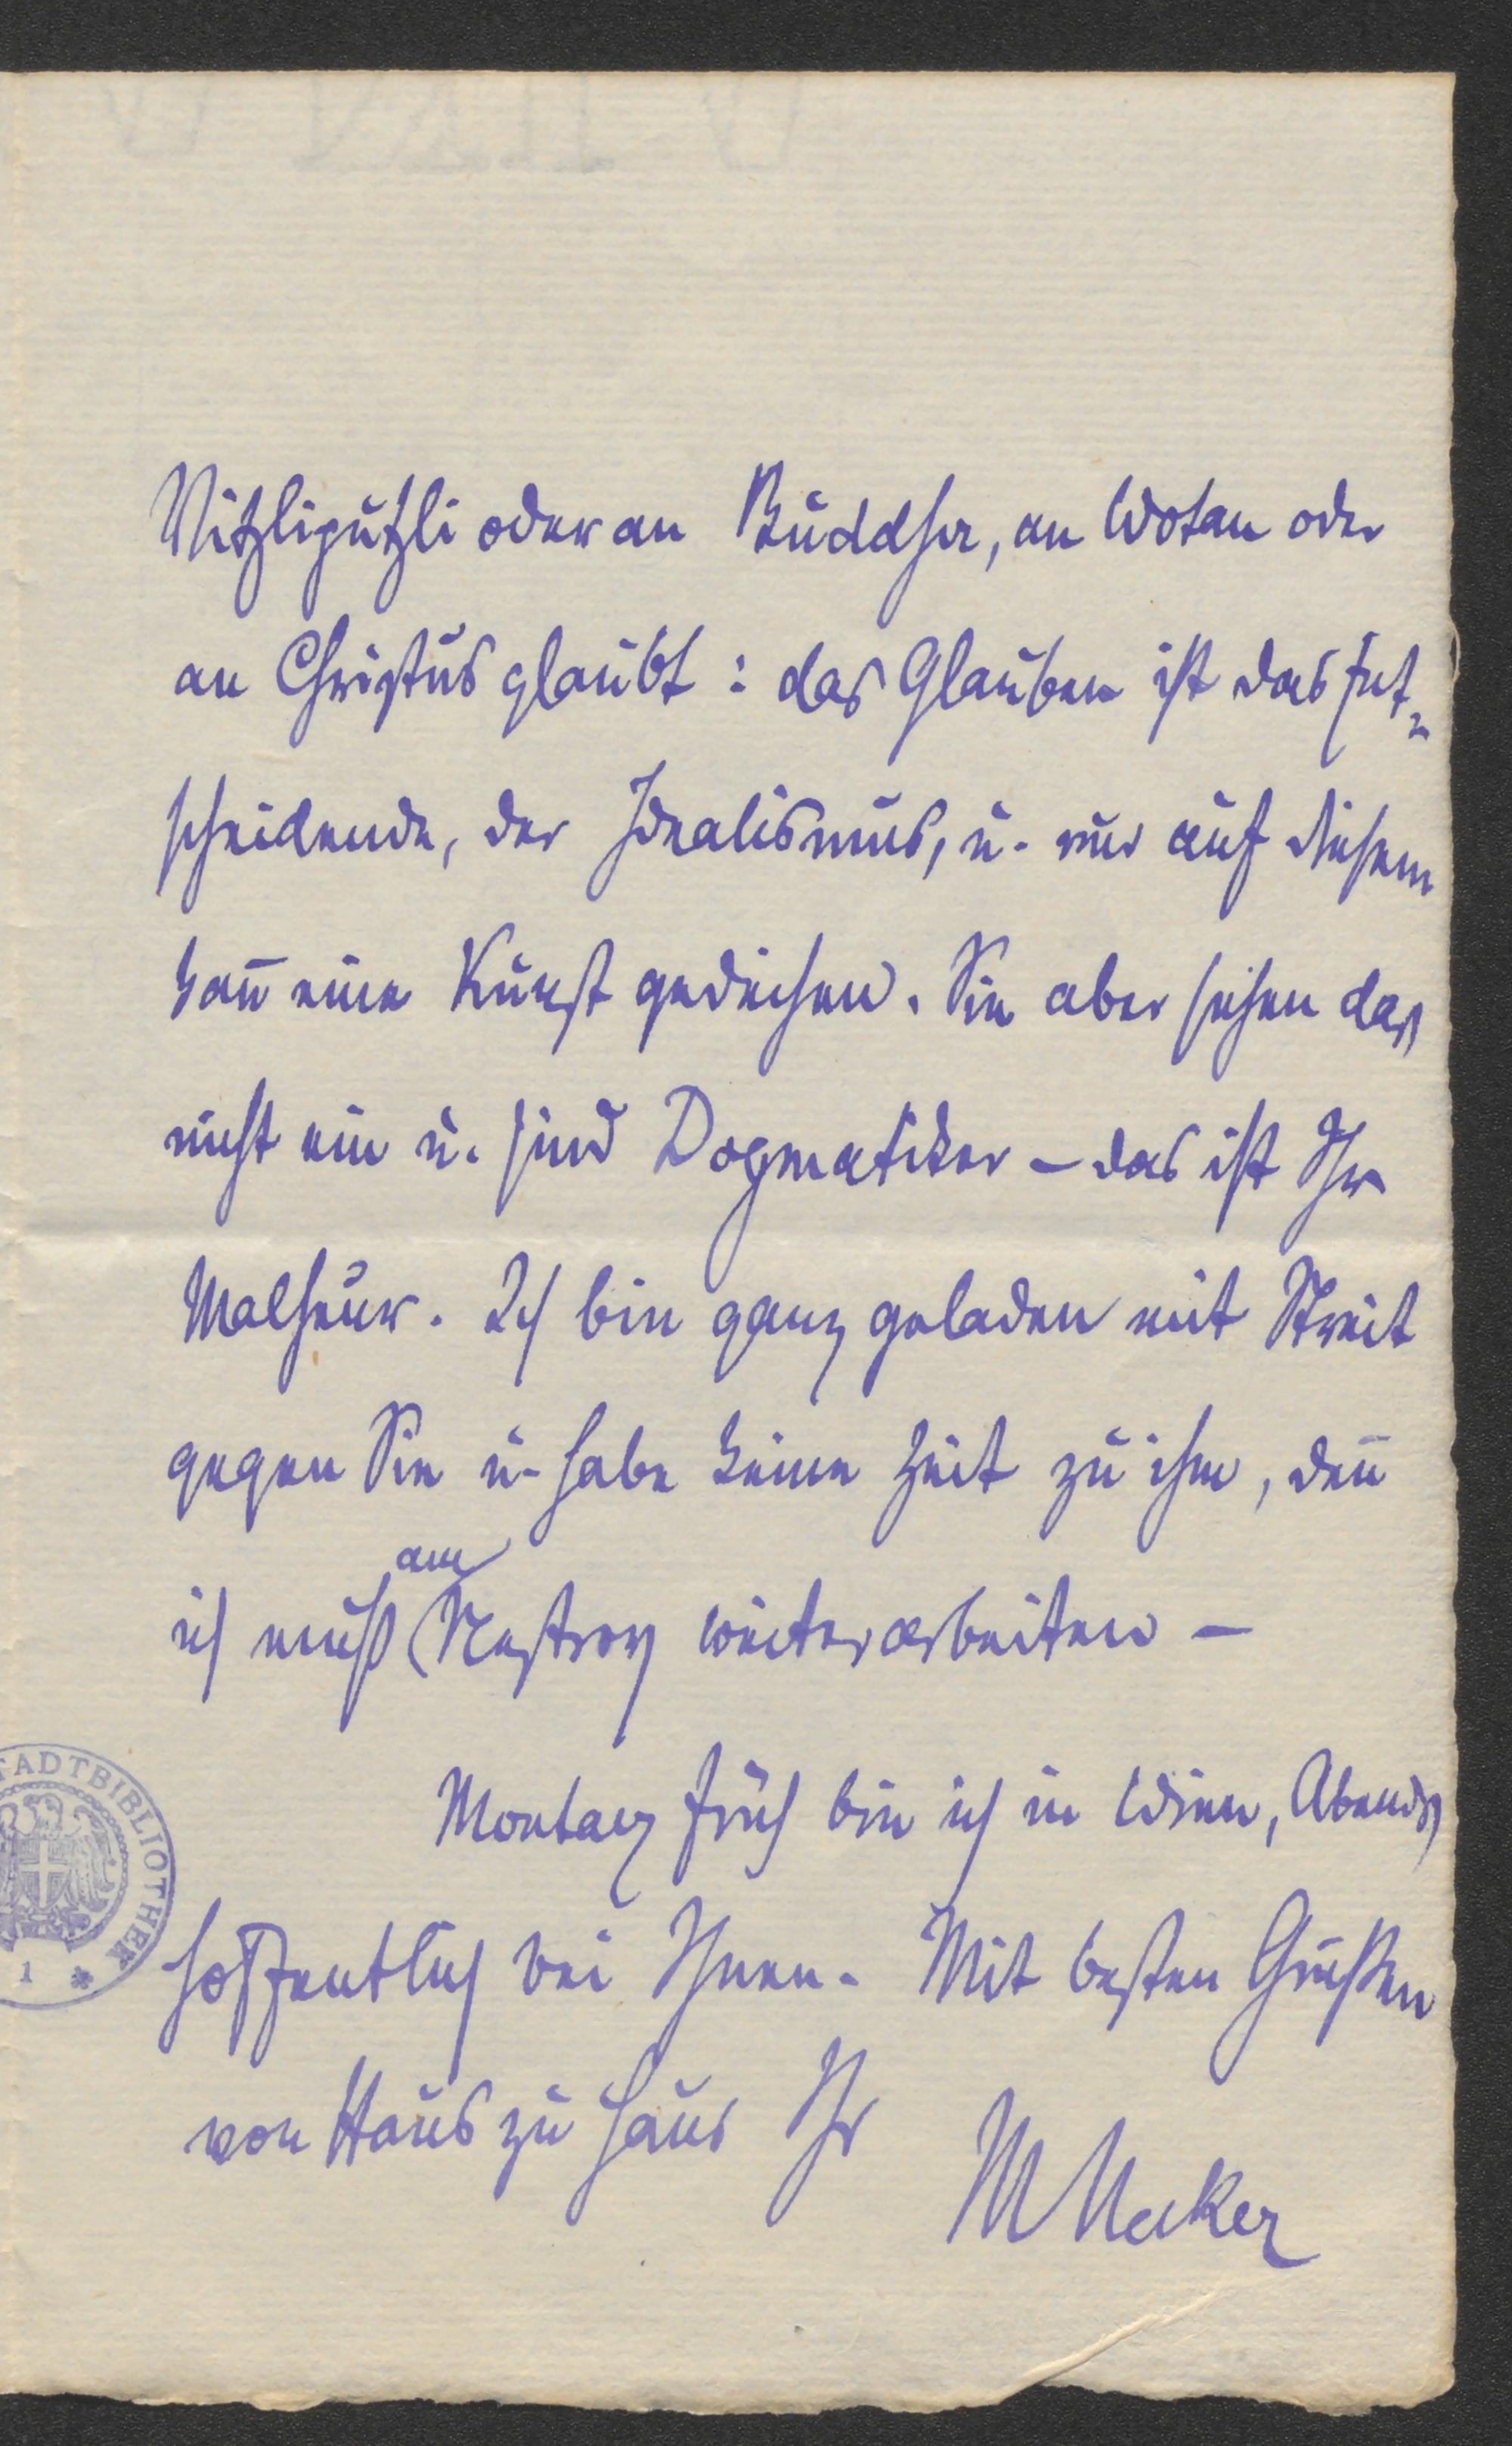 Vitzliputzli oder an Buddha, an Wotan oder
an Christus glaubt: das Glauben ist das Ent=
scheidende, der Idealismus, u. nur auf diesem
kan̄ eine Kunst gedeihen. Sie aber sehen das
nicht ein u. sind Dogmatiker – das ist Ihr
Malheur. Ich bin ganz geladen mit Streit
gegen Sie u. habe keine Zeit zu ihm, den̄
am
ich muß Nestroy weiterarbeiten –
Montag früh bin ich in Wien, Abends
hoffentlich bei Ihnen. Mit besten Grüßen
von Haus zu Haus Ihr
MNecker
STADTBIBLIOTHEK
1 *